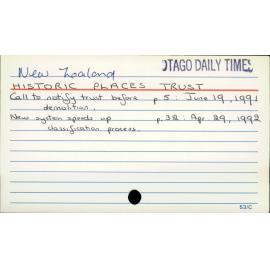 OTAGO DAILY TIMES
New Zealand
HISTORIC PLACES TRUST
Call to notify trust before p 5 : June 19, 1991
demolition.
New system speeds up p. 32 : Apr 29, 1992
classification process.
53/C